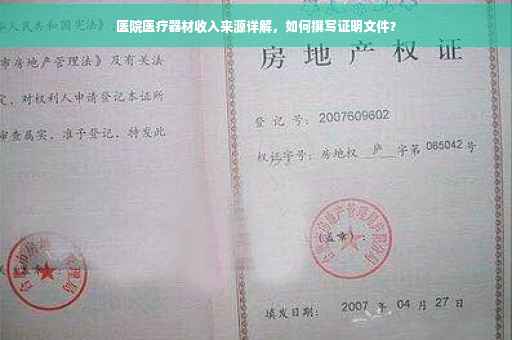 医院医疗器材收入来源详解，如何撰写证明文件？
人民共和国宪法》
市房地产管理法》及有关法
定，对权利人申请登记本证所
审查属实，准予登记，特发此
房地产权证
登记号：2007609602
权证字号：房地权 庐 字第 085042 号
（盖章）：
填发日期：2007 年 04 月 27 日